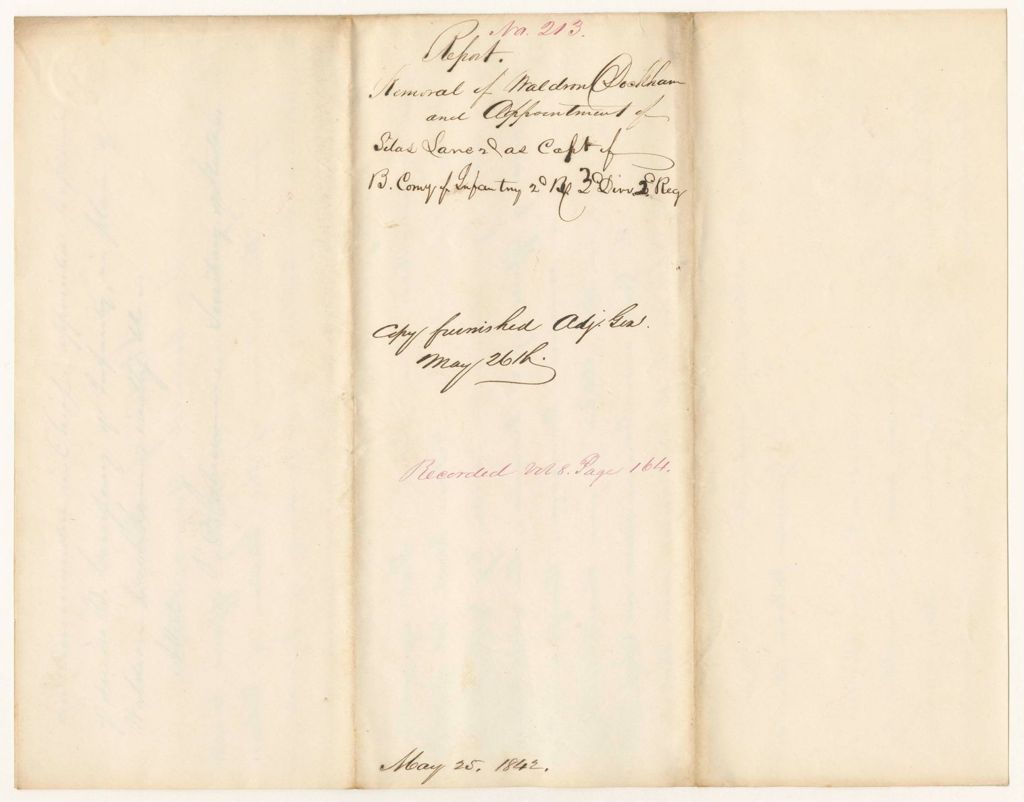 No. 213.
Report.
Removal of Waldron Dockham
and Appointment of
Silas Lane 2d as Capt of
B. Comy of Infantry 2d R 2d Div.
Copy furnished Adj. Gen.
May 26th.
Recorded Vol 8. Page 164.
May 25. 1842.